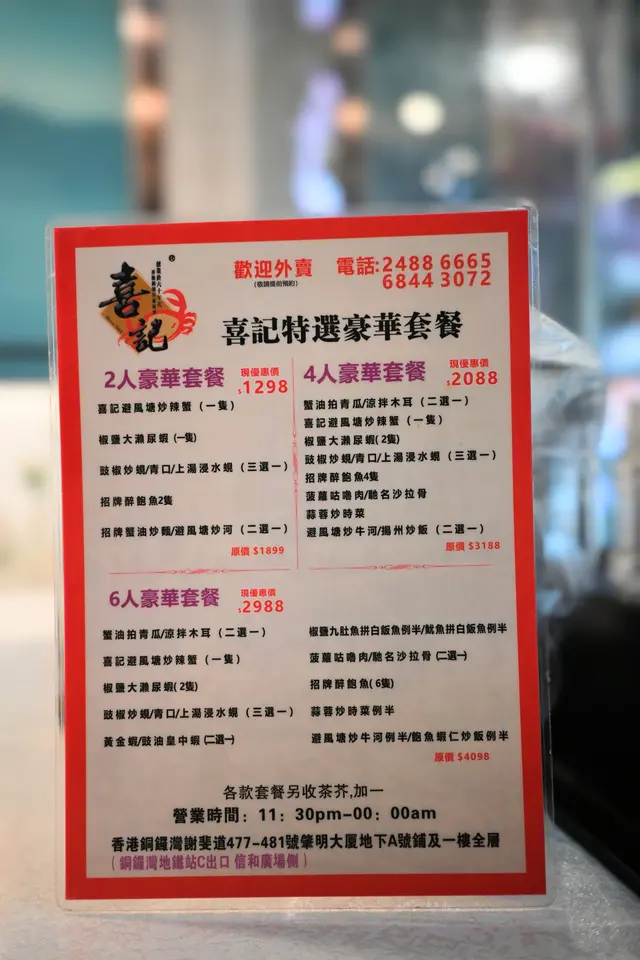 喜記
®
歡迎外賣
(敬請提前預約)
電話:2488 6665
6844 3072
喜記特選豪華套餐
2人豪華套餐 現優惠價
$1298
喜記避風塘炒辣蟹（一隻）
椒鹽大瀨尿蝦 (一隻)
豉椒炒蜆/青口/上湯浸水蜆（三選一）
招牌醉鮑魚2隻
招牌蟹油炒麵/避風塘炒河（二選一）
原價 $1899
4人豪華套餐 現優惠價
$2088
蟹油拍青瓜/涼拌木耳（二選一）
喜記避風塘炒辣蟹（一隻）
椒鹽大瀨尿蝦(2隻)
豉椒炒蜆/青口/上湯浸水蜆（三選一）
招牌醉鮑魚4隻
菠蘿咕嚕肉/馳名沙拉骨
蒜蓉炒時菜
避風塘炒牛河/揚州炒飯（二選一）
原價 $3188
6人豪華套餐 現優惠價
$2988
蟹油拍青瓜/涼拌木耳（二選一）
喜記避風塘炒辣蟹（一隻）
椒鹽大瀨尿蝦(2隻)
豉椒炒蜆/青口/上湯浸水蜆（三選一）
黃金蝦/豉油皇中蝦(二選一)
椒鹽九肚魚拼白飯魚例半/魷魚拼白飯魚例半
菠蘿咕嚕肉/馳名沙拉骨(二選一)
招牌醉鮑魚(6隻)
蒜蓉炒時菜例半
避風塘炒牛河例半/鮑魚蝦仁炒飯例半
原價 $4098
各款套餐另收茶芥,加一
營業時間：11：30pm-00：00am
香港銅鑼灣謝斐道477-481號肇明大厦地下A號鋪及一樓全層
（銅鑼灣地鐵站C出口 信和廣場側）